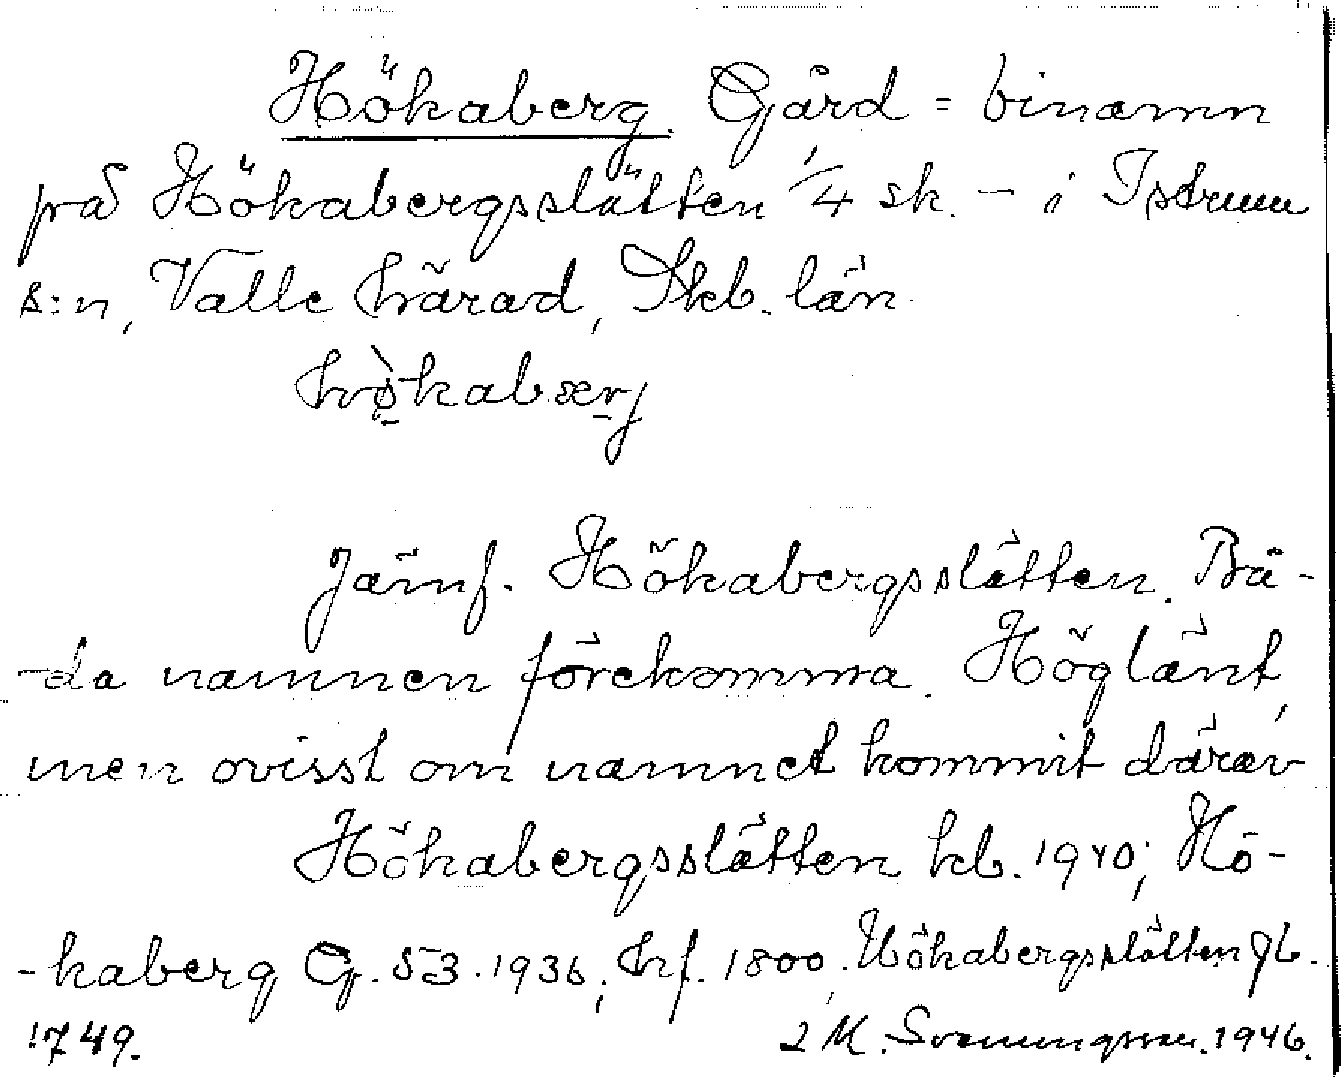 Hökaberg. Gård = binamn
på Hökabergsslätten 1/4 sk. - i Istrum
s:n, Valle härad, Skb. län
hö̀kabærj
Jämf. Hökabergsslätten. Bå-
-da namnen förekomma. Höglänt,
men ovisst om namnet kommit därav
Hökabergsslätten kb. 1940; Hö-
-kaberg G. 53. 1936; hf. 1800, Hökabergsslätten Jb.
1749.
2 M. Svenungsson. 1946.